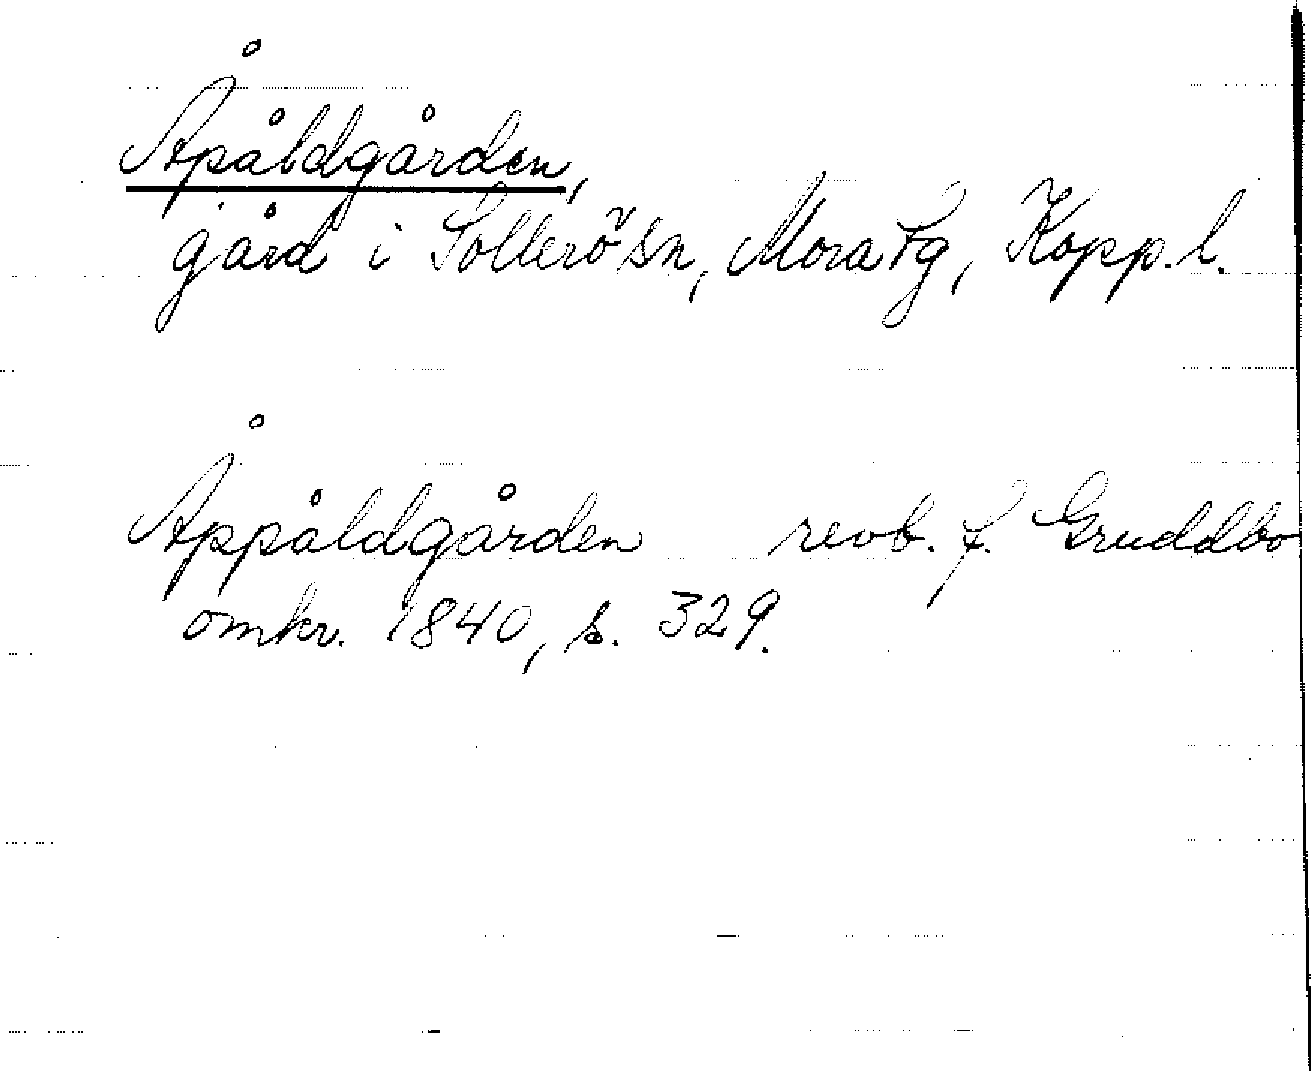 Åpåldgården,
gård i Sollerö sn, Mora tg, Kopp. l.
Åppåldgården revb. f. Gruddbo
omkr. 1840, s. 329.